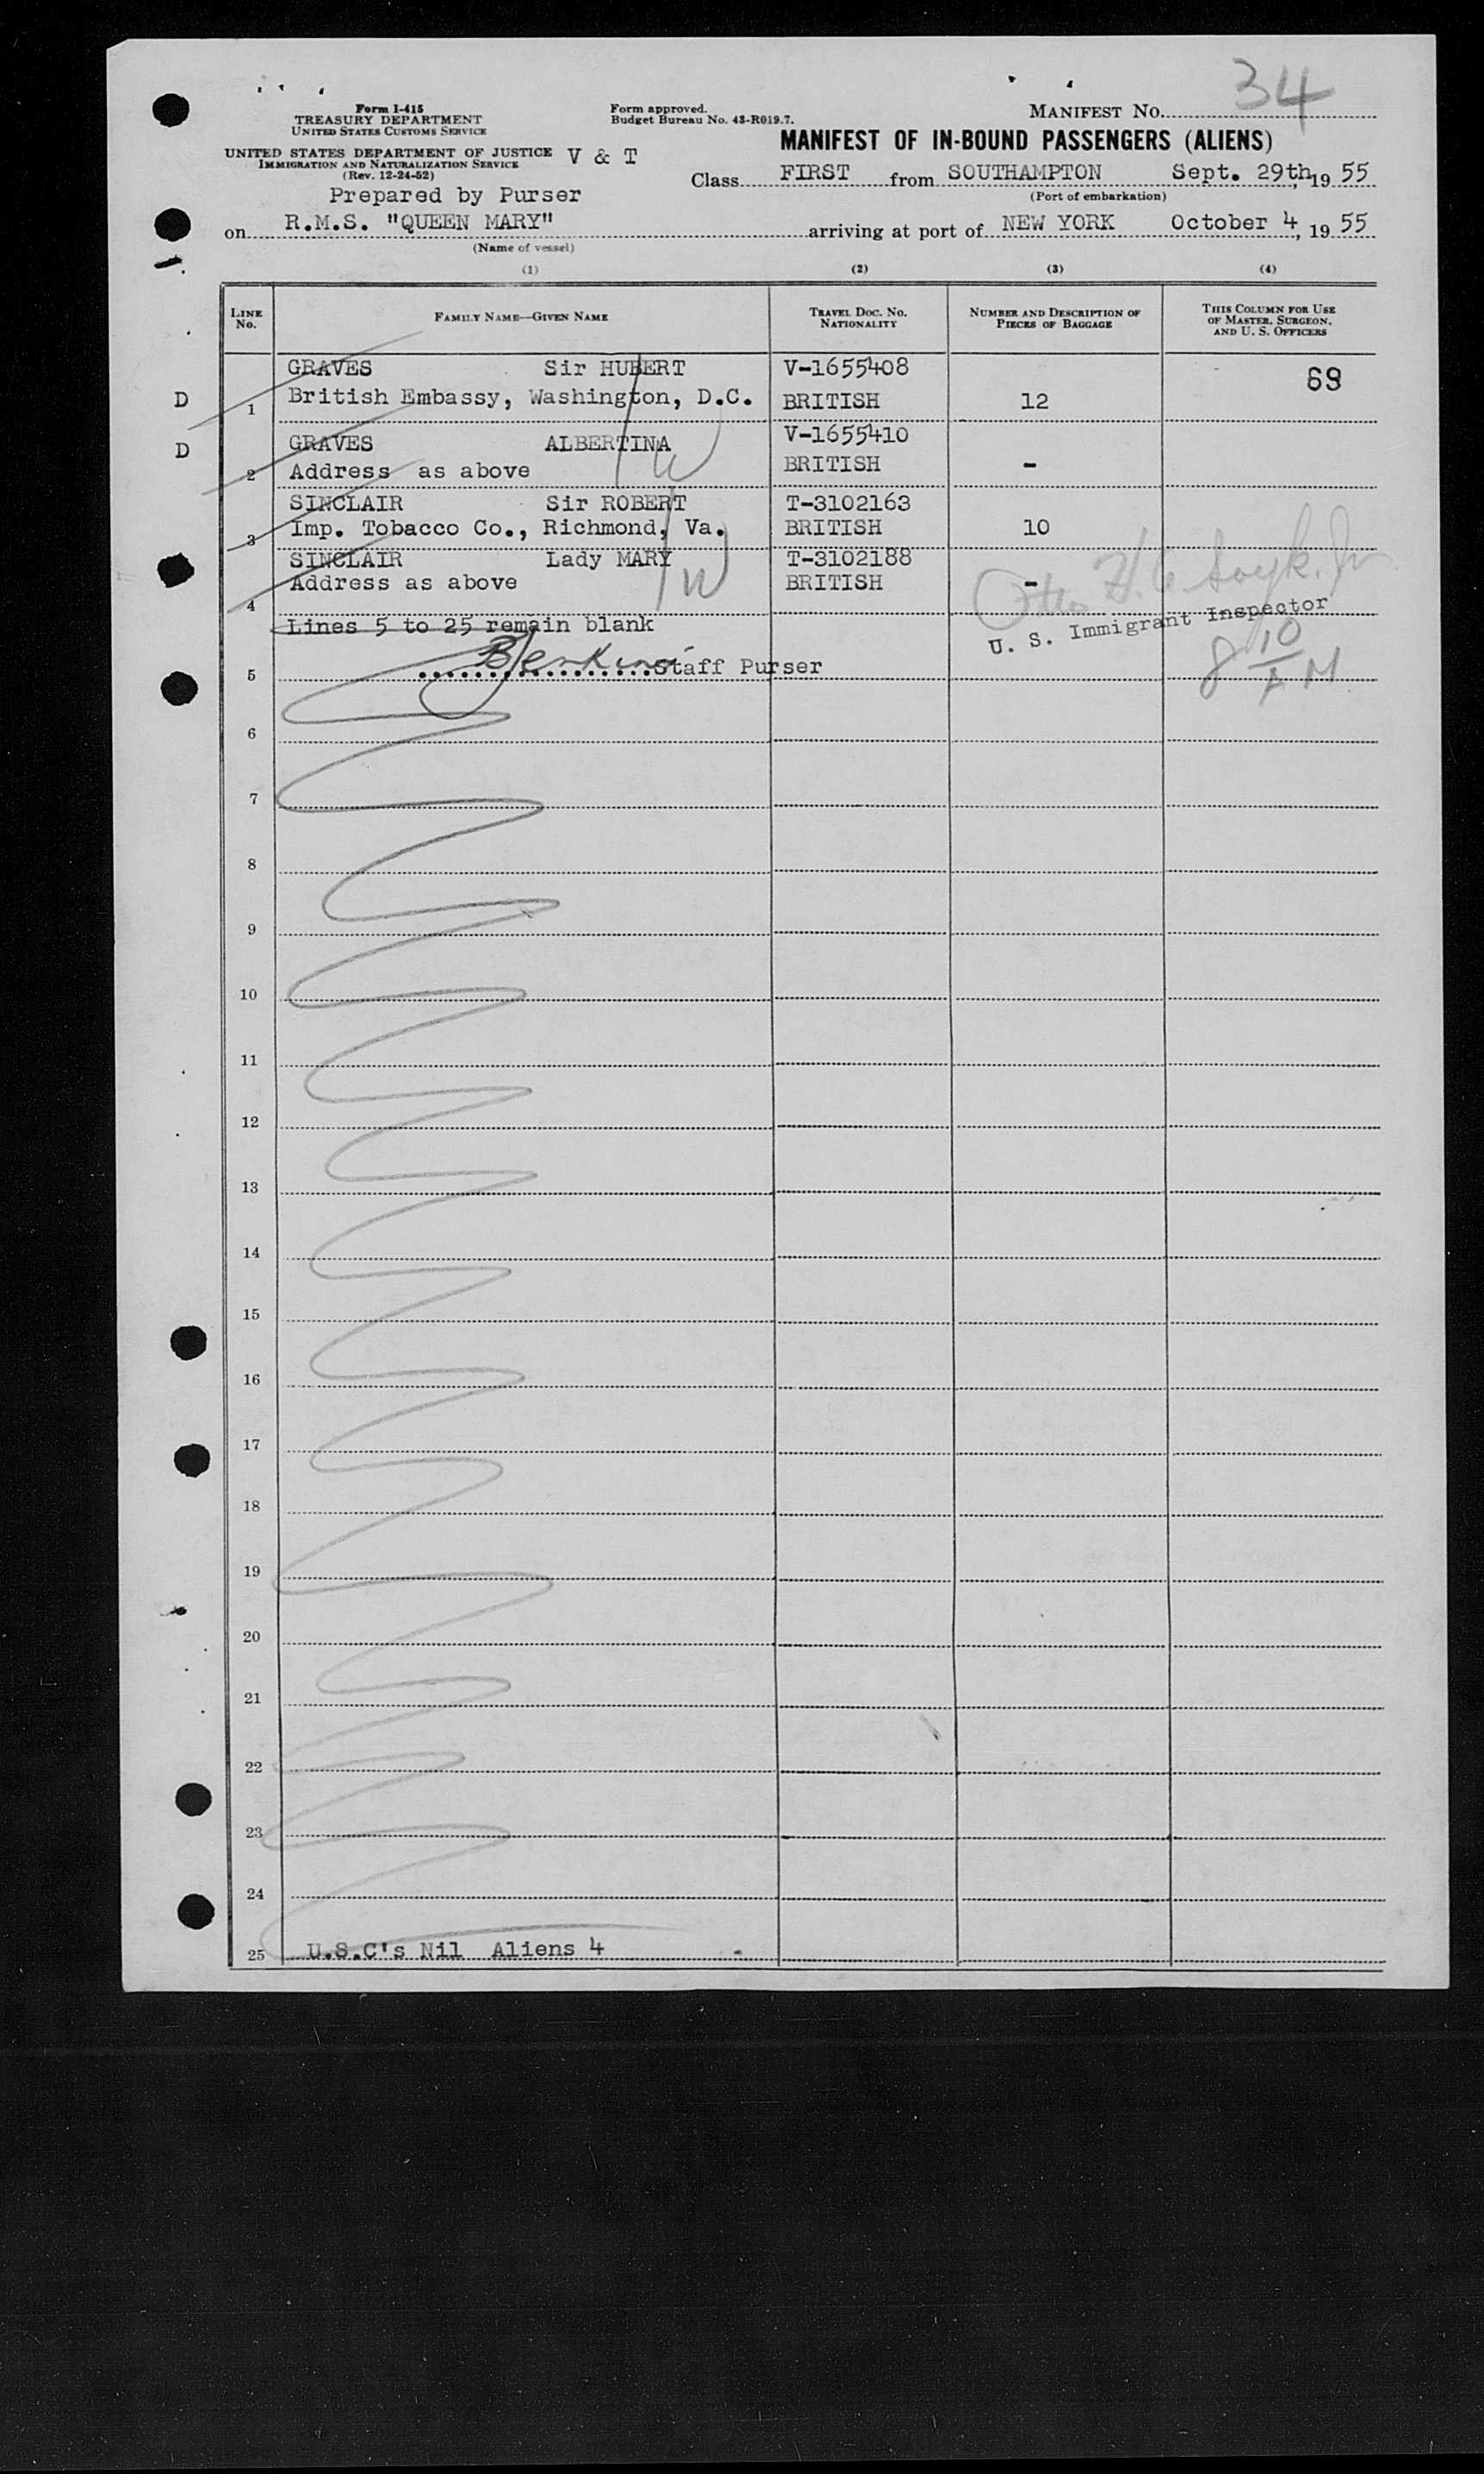 34
Form I-415
TREASURY DEPARTMENT
UNITED STATES CUSTOMS SERVICE
Form approved.
Budget Bureau No. 43-R019.7.
MANIFEST No.
MANIFEST OF IN-BOUND PASSENGERS (ALIENS)
UNITED STATES DEPARTMENT OF JUSTICE V & T
IMMIGRATION AND NATURALIZATION SERVICE
(Rev. 12-24-52)
Class FIRST from SOUTHAMPTON Sept. 29th, 19 55
(Port of embarkation)
Prepared by Purser
on R.M.S. "QUEEN MARY" arriving at port of NEW YORK October 4, 19 55
(Name of vessel)
(1) (2) (3) (4)
LINE No. FAMILY NAME—GIVEN NAME TRAVEL DOC. NO. NATIONALITY NUMBER AND DESCRIPTION OF PIECES OF BAGGAGE THIS COLUMN FOR USE OF MASTER, SURGEON, AND U. S. OFFICERS
GRAVES Sir HUBERT V-1655408 69
D 1 British Embassy, Washington, D.C. BRITISH 12
GRAVES ALBERTINA V-1655410
D 2 Address as above BRITISH - W
SINCLAIR Sir ROBERT T-3102163
3 Imp. Tobacco Co., Richmond, Va. BRITISH 10
SINCLAIR Lady MARY T-3102188
4 Address as above BRITISH - W
Lines 5 to 25 remain blank
U. S. Immigrant Inspector
5 Staff Purser 8 10 AM
6
7
8
9
10
11
12
13
14
15
16
17
18
19
20
21
22
23
24
25 U.S.C's Nil Aliens 4 -